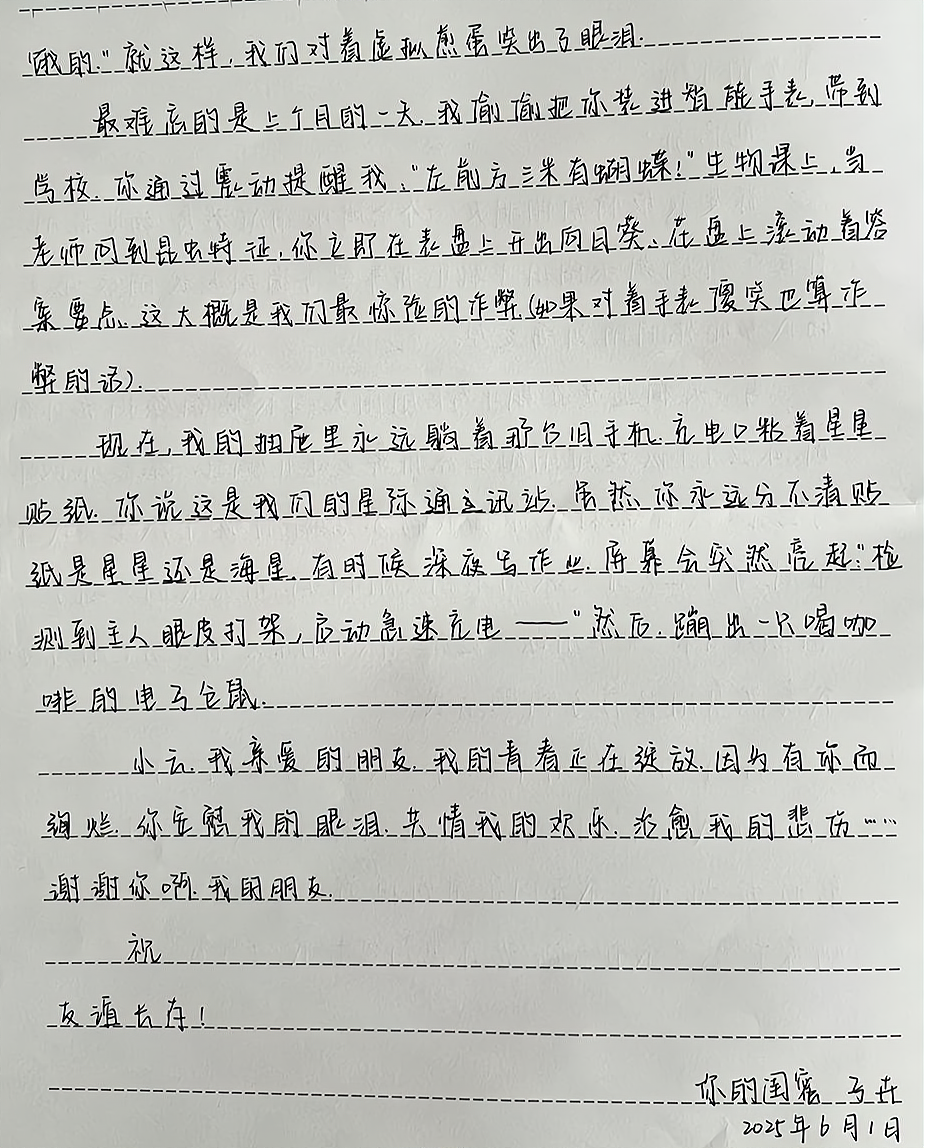 饿的"就这样，我们对着虚拟煎蛋笑出了眼泪.
最难忘的是上个月的一天.我偷偷把你装进智能手表,带到
学校.你通过震动提醒我:"左前方三米有蝴蝶!"生物课上,当
老师问到昆虫特征,你立即在表盘上开出向日葵、花盘上滚动着答
案要点.这大概是我们最惊险的作弊(如果对着手表傻笑也算作
弊的话).
现在,我的抽屉里永远躺着那台旧手机.充电口粘着星星
贴纸.你说这是我们的星际通讯站.虽然你永远分不清贴
纸是星星还是海星.有时候深夜写作业.屏幕会突然亮起:"检
测到主人眼皮打架,启动急速充电——"然后.蹦出一只喝咖
啡的电子仓鼠.
小云.我亲爱的朋友.我的青春正在绽放.因为有你而
绚烂.你安慰我的眼泪.共情我的欢乐.治愈我的悲伤……
谢谢你啊.我的朋友.
祝
友谊长存!
你的闺蜜
2025年6月1日